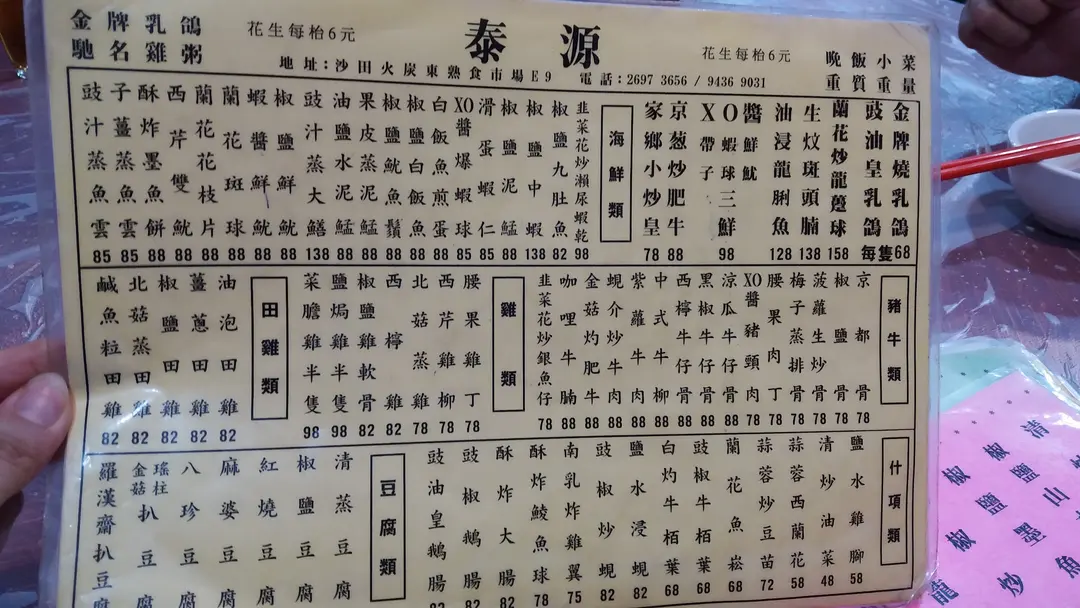 金牌乳鴿
馳名雞粥
花生每枱6元
泰源
花生每枱6元
晚飯小菜
重質重量
地址：沙田火炭東熟食市場E9 電話：2697 3656 / 9436 9031
金牌燒乳鴿
豉油皇乳鴿
每隻68
蘭花炒龍躉球 158
生炆斑頭腩 138
油浸龍脷魚 128
醬鮮魷
O蝦球三鮮 98
X帶子
京葱炒肥牛 88
家鄉小炒皇 78
海鮮類
韭菜花炒瀨尿蝦乾 98
椒鹽九肚魚 82
椒鹽中蝦 138
椒鹽泥鯭 88
滑蛋蝦仁 85
XO醬爆蝦球 85
白飯魚煎蛋 88
椒鹽白飯魚 88
椒鹽魷鬚 88
果皮蒸泥鯭 88
油鹽水泥鯭 88
豉汁蒸大鱔 138
椒鹽鮮魷 88
蝦醬鮮魷 88
蘭花斑球 88
蘭花花枝片 88
西芹雙魷 88
酥炸墨魚餅 88
子薑蒸魚雲 85
豉汁蒸魚雲 85
豬牛類
京都骨 78
椒鹽骨 78
菠蘿生炒骨 78
梅子蒸排骨 78
腰果肉丁 78
XO醬豬頸肉 78
涼瓜牛仔骨 88
黑椒牛仔骨 88
西檸牛仔骨 88
中式牛肉 88
紫蘿牛肉 88
蜆介炒牛肉 88
金菇灼肥牛 88
咖哩牛腩 88
韭菜花炒銀魚仔 78
雞類
腰果雞丁 78
西芹雞柳 78
北菇蒸雞 78
西檸雞 82
椒鹽雞軟骨 82
鹽焗雞半隻 98
菜膽雞半隻 98
田雞類
油泡田雞 82
薑蔥田雞 82
椒鹽田雞 82
北菇蒸田雞 82
鹹魚粒田雞 82
什項類
鹽水雞腳 58
清炒油菜 48
蒜蓉西蘭花 58
蒜蓉炒豆苗 72
蘭花魚崧 68
豉椒牛栢葉 68
白灼牛栢葉 68
鹽水浸蜆 82
豉椒炒蜆 82
南乳炸雞翼 75
酥炸鯪魚球 78
酥炸大腸 82
豉椒鵝腸
豉油皇鵝腸
豆腐類
清蒸豆腐
椒鹽豆腐
紅燒豆腐
麻婆豆腐
八珍豆腐
瑤柱金菇扒豆腐
羅漢齋扒豆腐